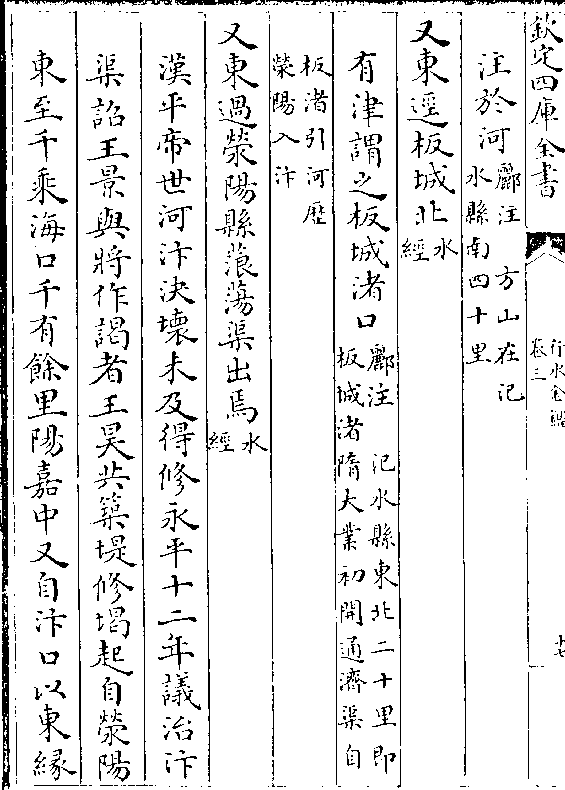 欽定四庫全書
行水金鑑
卷三
十七
注於河酈注 方山在汜
水縣南四十里
又東逕板城北水
經
有津謂之板城渚口酈注 汜水縣東北二十里即
板城渚隋大業初開通濟渠自
板渚引河歷
滎陽入汴
又東過滎陽縣蒗蕩渠出焉水
經
漢平帝世河汴決壞未及得修永平十二年議治汴
渠詔王景與將作謁者王昊共築堤修堨起自滎陽
東至千乘海口千有餘里陽嘉中又自汴口以東緣